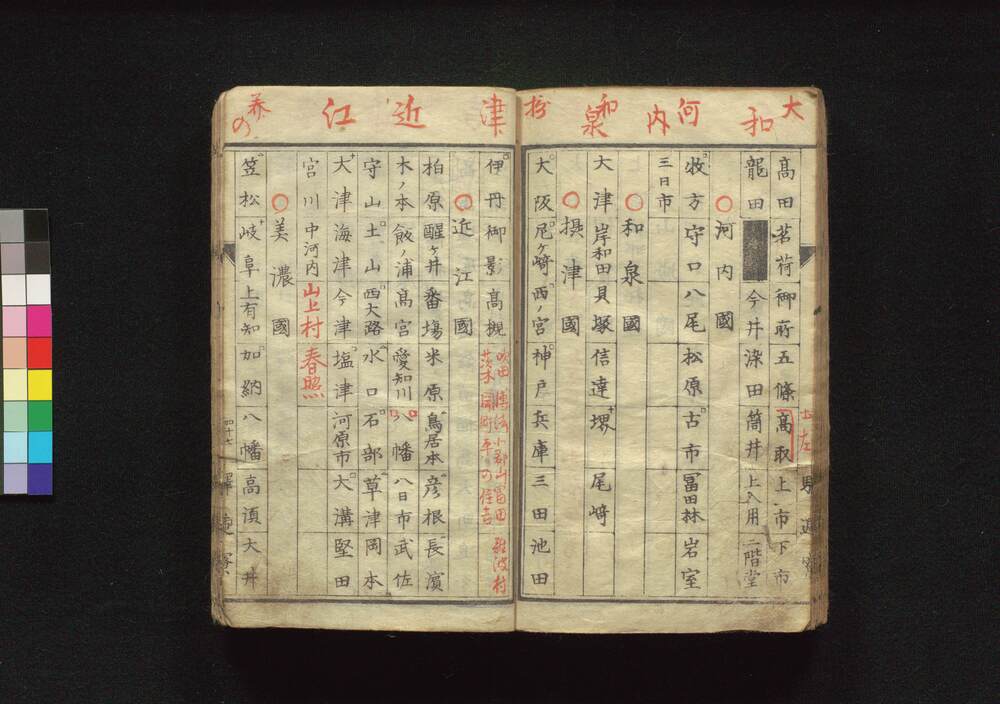 大和
河内
和泉
摂
高田 茗荷 御所 五條 高取 上市 下市
土左
龍田 今井 染田 筒井 上入用 二階堂
○河内國
牧方 守口 八尾 松原 古市 冨田林 岩室
三日市
○和泉國
大津 岸和田 貝塚 信達 堺 尾﨑
○摂津國
大阪 尼ヶ﨑 西ノ宮 神戸 兵庫 三田 池田
津
近江
美の
伊丹 御影 高槻
吹田 小郡山 冨田 難波村
茨木 平の 住吉
○近江國
柏原 醒ヶ井 番場 米原 鳥居本 彦根 長濱
木ノ本 飯ノ浦 高宮 愛知川 八幡 八日市 武佐
守山 土山 西大路 水口 石部 草津 岡本
大津 海津 今津 塩津 河原市 大溝 堅田
宮川 中河内 山上村 春照
○美濃國
笠松 岐阜 上有知 加納 八幡 高湏 大井
四十七